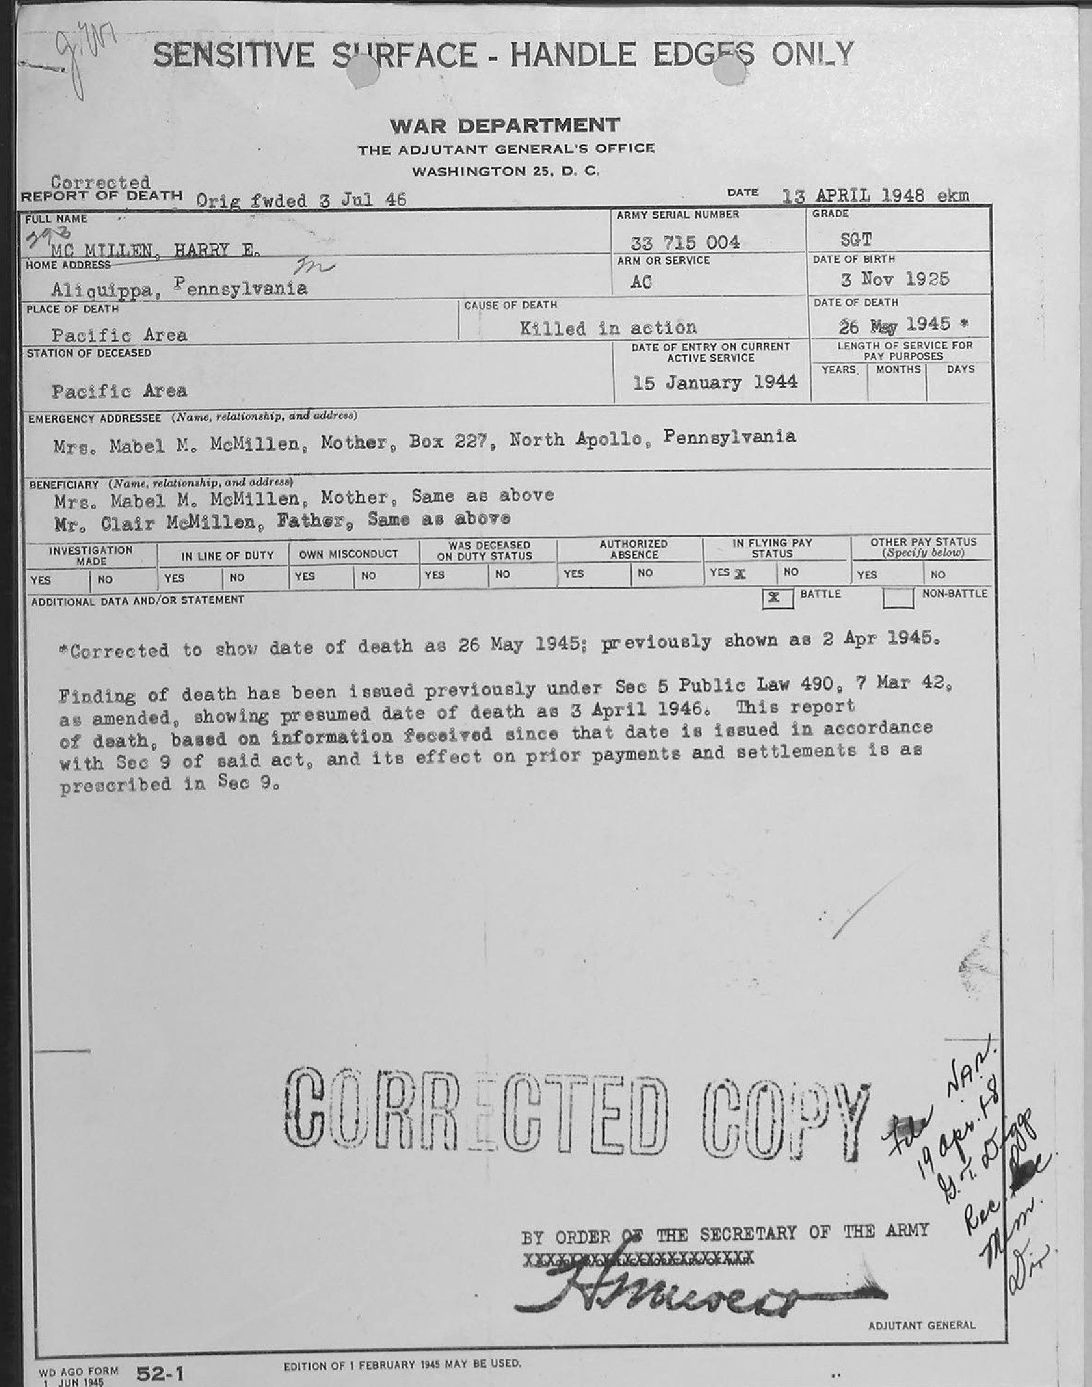 SENSITIVE SURFACE - HANDLE EDGES ONLY
WAR DEPARTMENT
THE ADJUTANT GENERAL'S OFFICE
WASHINGTON 25, D. C.
Corrected
REPORT OF DEATH Orig fwded 3 Jul 46 DATE 13 APRIL 1948 ekm
FULL NAME ARMY SERIAL NUMBER GRADE
293
MC MILLEN, HARRY E. 33 715 004 SGT
HOME ADDRESS ARM OR SERVICE DATE OF BIRTH
Aliquippa, Pennsylvania AC 3 Nov 1925
PLACE OF DEATH CAUSE OF DEATH DATE OF DEATH
Pacific Area Killed in action 26 May 1945 *
STATION OF DECEASED DATE OF ENTRY ON CURRENT ACTIVE SERVICE LENGTH OF SERVICE FOR PAY PURPOSES
YEARS MONTHS DAYS
Pacific Area 15 January 1944
EMERGENCY ADDRESSEE (Name, relationship, and address)
Mrs. Mabel M. McMillen, Mother, Box 227, North Apollo, Pennsylvania
BENEFICIARY (Name, relationship, and address)
Mrs. Mabel M. McMillen, Mother, Same as above
Mr. Clair McMillen, Father, Same as above
INVESTIGATION MADE IN LINE OF DUTY OWN MISCONDUCT WAS DECEASED ON DUTY STATUS AUTHORIZED ABSENCE IN FLYING PAY STATUS OTHER PAY STATUS (Specify below)
YES NO YES NO YES NO YES NO YES NO YES X NO YES NO
ADDITIONAL DATA AND/OR STATEMENT X BATTLE NON-BATTLE
*Corrected to show date of death as 26 May 1945; previously shown as 2 Apr 1945.
Finding of death has been issued previously under Sec 5 Public Law 490, 7 Mar 42,
as amended, showing presumed date of death as 3 April 1946. This report
of death, based on information received since that date is issued in accordance
with Sec 9 of said act, and its effect on prior payments and settlements is as
prescribed in Sec 9.
CORRECTED COPY
File NAR.
19 Apr. 48
G. T. Diggs
Rec.
Mem.
Div.
BY ORDER OF THE SECRETARY OF THE ARMY
XXXXXXXXXXXXXXXXXXXXX
ADJUTANT GENERAL
WD AGO FORM 52-1 EDITION OF 1 FEBRUARY 1945 MAY BE USED.
1 JUN 1945